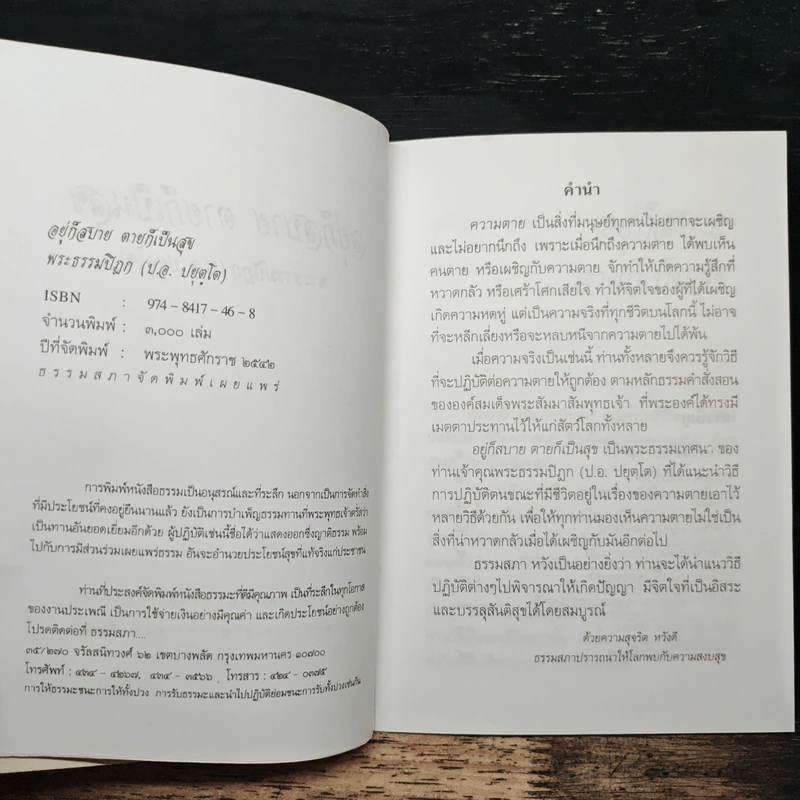 อยู่ก็สบาย ตายก็เป็นสุข
พระธรรมปิฎก (ป.อ. ปยุตฺโต)
ISBN : 974 – 8417 – 46 – 8
จำนวนพิมพ์ : ๓,๐๐๐ เล่ม
ปีที่จัดพิมพ์ : พระพุทธศักราช ๒๕๔๒
ธรรมสภาจัดพิมพ์เผยแพร่
การพิมพ์หนังสือธรรมเป็นอนุสรณ์และที่ระลึก นอกจากเป็นการจัดทำสิ่ง
ที่มีประโยชน์ที่คงอยู่ยืนนานแล้ว ยังเป็นการบำเพ็ญธรรมทานที่พระพุทธเจ้าตรัสว่า
เป็นทานอันยอดเยี่ยมอีกด้วย ผู้ปฏิบัติเช่นนี้ชื่อได้ว่าแสดงออกซึ่งญาติธรรม พร้อม
ไปกับการมีส่วนร่วมเผยแพร่ธรรม อันจะอำนวยประโยชน์สุขที่แท้จริงแก่ประชาชน
ท่านที่ประสงค์จัดพิมพ์หนังสือธรรมะที่ดีมีคุณภาพ เป็นที่ระลึกในทุกโอกาส
ของงานประเพณี เป็นการใช้จ่ายเงินอย่างมีคุณค่า และเกิดประโยชน์อย่างถูกต้อง
โปรดติดต่อที่ ธรรมสภา....
๓๕/๒๗๐ จรัลสนิทวงศ์ ๖๒ เขตบางพลัด กรุงเทพมหานคร ๑๐๗๐๐
โทรศัพท์ : ๔๓๔ - ๔๒๖๗, ๔๓๔ - ๓๕๖๖ , โทรสาร : ๔๒๔ - ๐๓๗๕
การให้ธรรมะชนะการให้ทั้งปวง การรับธรรมะและนำไปปฏิบัติย่อมชนะการรับทั้งปวงเช่นกัน
คำนำ
ความตาย เป็นสิ่งที่มนุษย์ทุกคนไม่อยากจะเผชิญ
และไม่อยากนึกถึง เพราะเมื่อนึกถึงความตาย ได้พบเห็น
คนตาย หรือเผชิญกับความตาย จักทำให้เกิดความรู้สึกที่
หวาดกลัว หรือเศร้าโศกเสียใจ ทำให้จิตใจของผู้ที่ได้เผชิญ
เกิดความหดหู่ แต่เป็นความจริงที่ทุกชีวิตบนโลกนี้ ไม่อาจ
ที่จะหลีกเลี่ยงหรือจะหลบหนีจากความตายไปได้พ้น
เมื่อความจริงเป็นเช่นนี้ ท่านทั้งหลายจึงควรรู้จักวิธี
ที่จะปฏิบัติต่อความตายให้ถูกต้อง ตามหลักธรรมคำสั่งสอน
ขององค์สมเด็จพระสัมมาสัมพุทธเจ้า ที่พระองค์ได้ทรงมี
เมตตาประทานไว้ให้แก่สัตว์โลกทั้งหลาย
อยู่ก็สบาย ตายก็เป็นสุข เป็นพระธรรมเทศนา ของ
ท่านเจ้าคุณพระธรรมปิฎก (ป.อ. ปยุตฺโต) ที่ได้แนะนำวิธี
การปฏิบัติตนขณะที่มีชีวิตอยู่ในเรื่องของความตายเอาไว้
หลายวิธีด้วยกัน เพื่อให้ทุกท่านมองเห็นความตายไม่ใช่เป็น
สิ่งที่น่าหวาดกลัวเมื่อได้เผชิญกับมันอีกต่อไป
ธรรมสภา หวังเป็นอย่างยิ่งว่า ท่านจะได้นำแนววิธี
ปฏิบัติต่างๆไปพิจารณาให้เกิดปัญญา มีจิตใจที่เป็นอิสระ
และบรรลุสันติสุขได้โดยสมบูรณ์
ด้วยความสุจริต หวังดี
ธรรมสภาปรารถนาให้โลกพบกับความสงบสุข